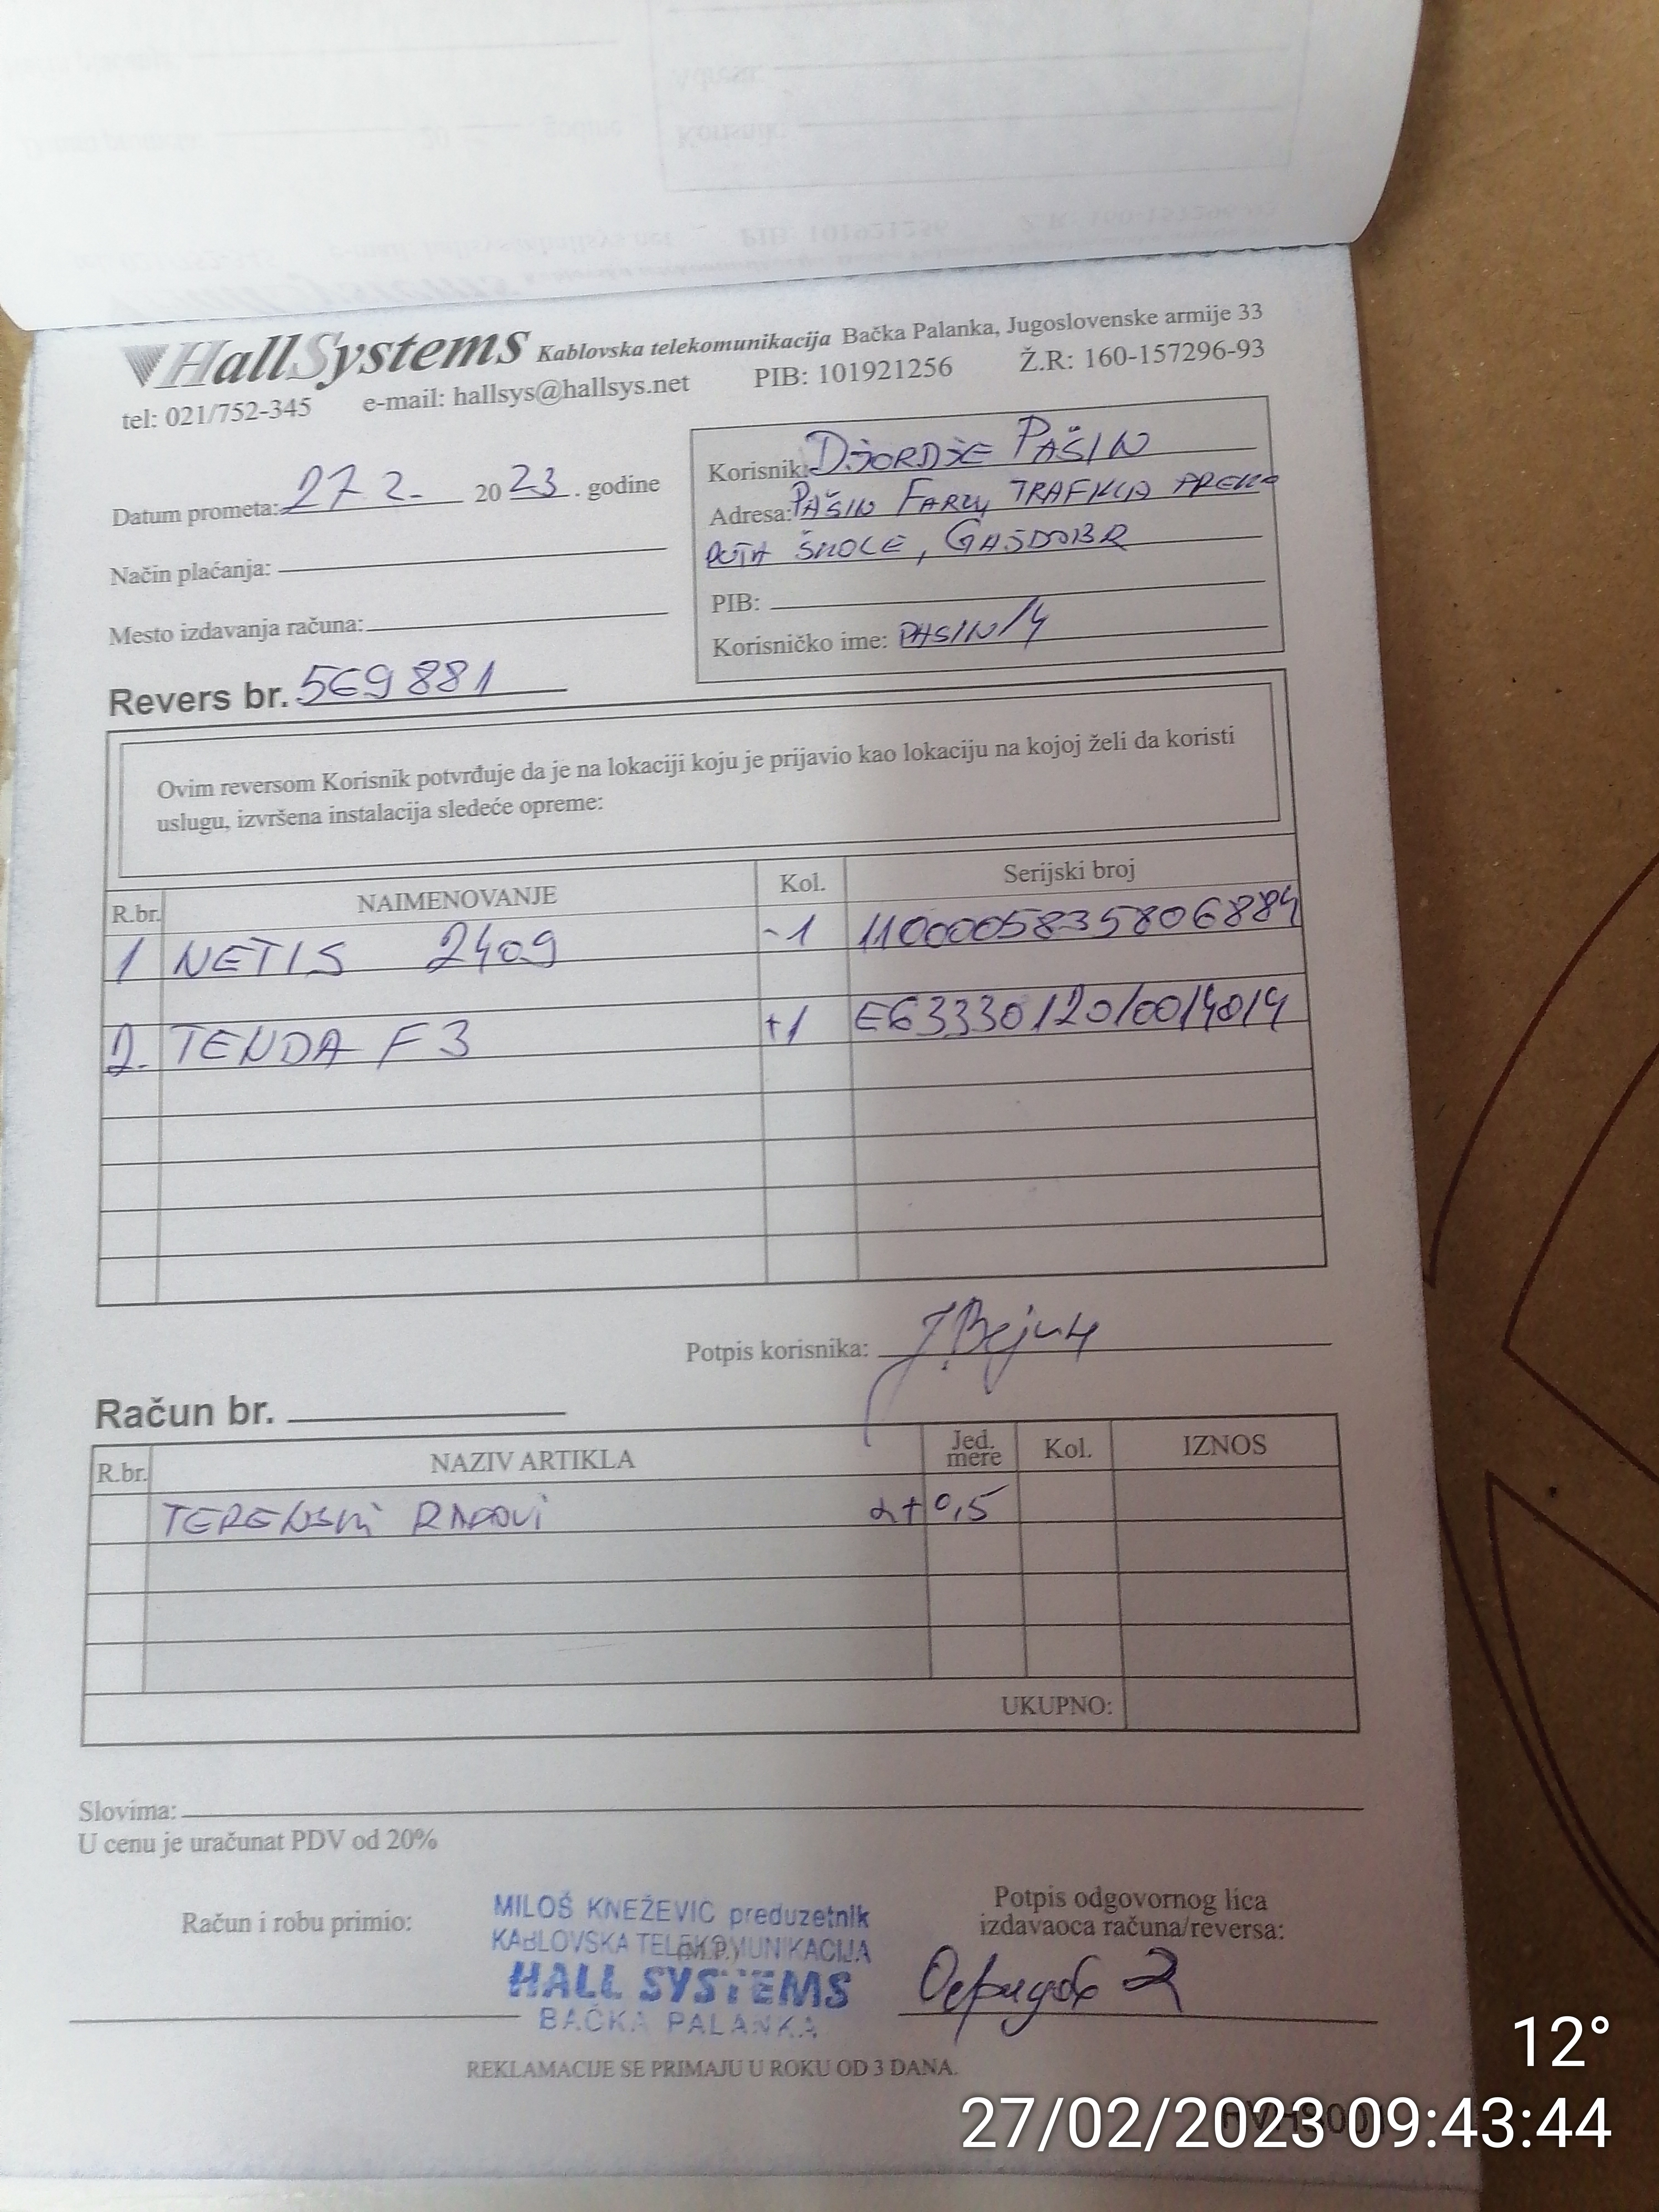 HallSystems Kablovska telekomunikacija Bačka Palanka, Jugoslovenske armije 33
tel: 021/752-345 e-mail: hallsys@hallsys.net PIB: 101921256 Ž.R: 160-157296-93
Datum prometa: 27 2. 2023. godine
Način plaćanja:
Mesto izdavanja računa:
Revers br. 569881
Korisnik: DJORDJE PAŠIN
Adresa: PAŠIN FARM, TRAFIKA PREKO
PUTA ŠKOLE, GAJDOBR
PIB:
Korisničko ime: PASIN/4
Ovim reversom Korisnik potvrđuje da je na lokaciji koju je prijavio kao lokaciju na kojoj želi da koristi
uslugu, izvršena instalacija sledeće opreme:
R.br. NAIMENOVANJE Kol. Serijski broj
1 NETIS 2409 -1 1100005835806884
2. TENDA F3 +1 E6333012010014014
Potpis korisnika:
Račun br.
R.br. NAZIV ARTIKLA Jed. mere Kol. IZNOS
TERENSKI RADOVI 2+0,5
UKUPNO:
Slovima:
U cenu je uračunat PDV od 20%
Račun i robu primio:
MILOŠ KNEŽEVIĆ preduzetnik
KABLOVSKA TELEKOMUNIKACIJA
(M.P.)
HALL SYSTEMS
BAČKA PALANKA
Potpis odgovornog lica
izdavaoca računa/reversa:
REKLAMACIJE SE PRIMAJU U ROKU OD 3 DANA.
12°
27/02/2023 09:43:44